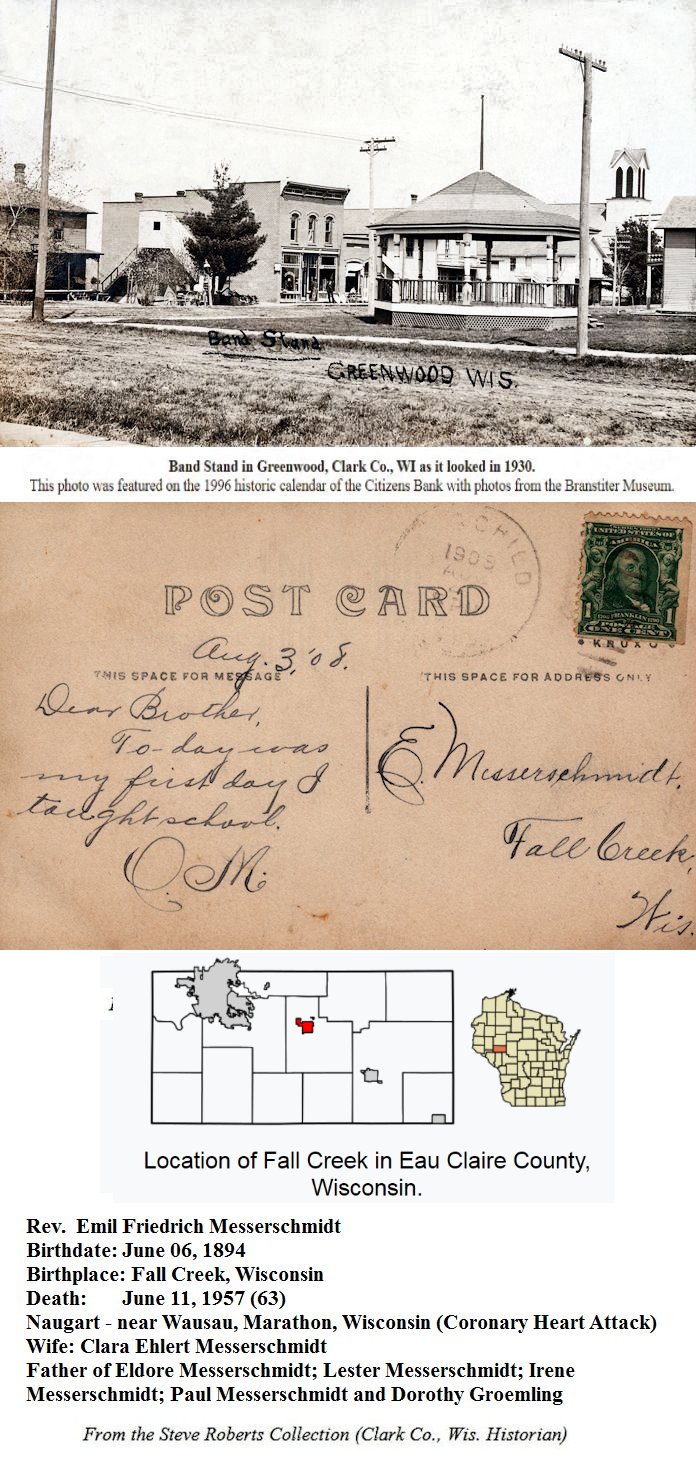 Band Stand
GREENWOOD WIS.
Band Stand in Greenwood, Clark Co., WI as it looked in 1930.
This photo was featured on the 1996 historic calendar of the Citizens Bank with photos from the Branstiter Museum.
CHILD
1909
POST CARD
UNITED STATES OF
AMERICA
1 FRANKLIN 1
POSTAGE
ONE CENT
KRUXO
Aug. 3, '08.
THIS SPACE FOR MESSAGE
THIS SPACE FOR ADDRESS ONLY
Dear Brother,
To-day was
my first day I
taught school.
O. M.
E. Messerschmidt.
Fall Creek,
Wis.
Location of Fall Creek in Eau Claire County,
Wisconsin.
Rev. Emil Friedrich Messerschmidt
Birthdate: June 06, 1894
Birthplace: Fall Creek, Wisconsin
Death: June 11, 1957 (63)
Naugart - near Wausau, Marathon, Wisconsin (Coronary Heart Attack)
Wife: Clara Ehlert Messerschmidt
Father of Eldore Messerschmidt; Lester Messerschmidt; Irene
Messerschmidt; Paul Messerschmidt and Dorothy Groemling
From the Steve Roberts Collection (Clark Co., Wis. Historian)